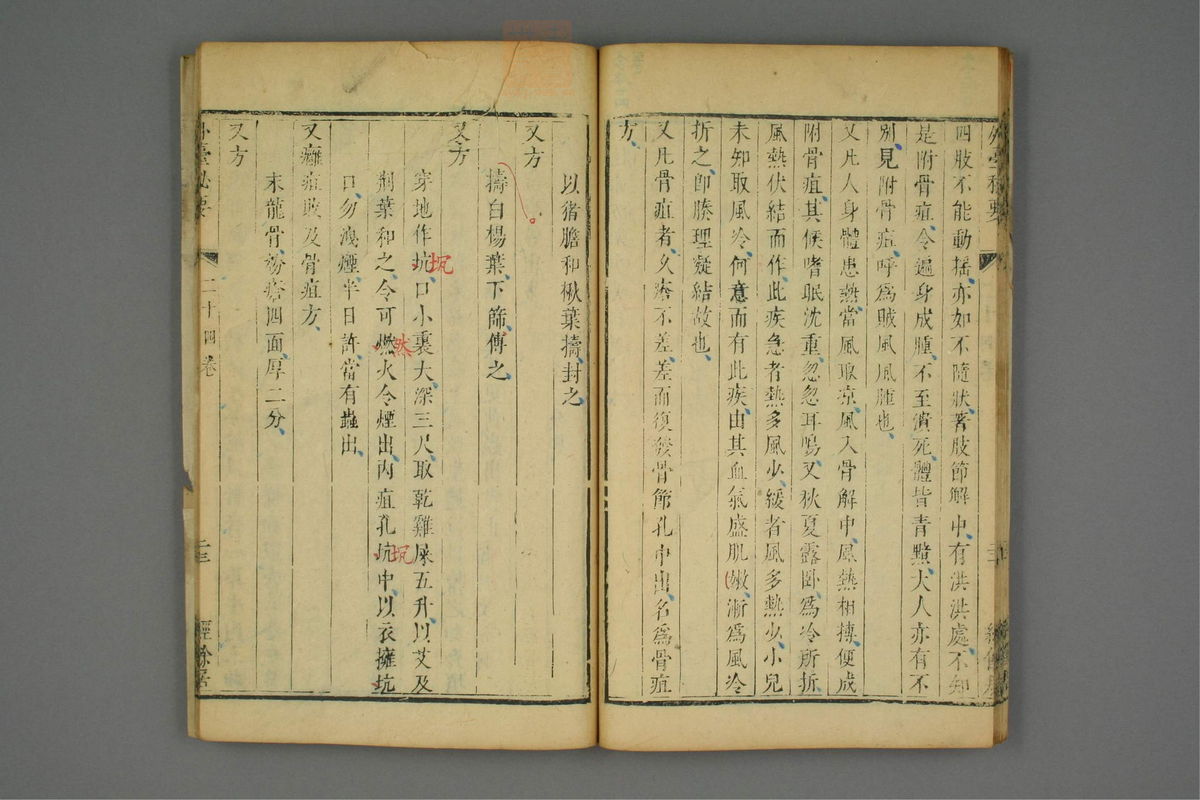 四肢不能動搖亦如不隨狀著肢節解中有洪洪處不知
是附骨疽令遍身成腫不至潰死體皆青黯大人亦有不
別見附骨疽呼為賊風風腫也
又凡人身體患熱當風取凉風入骨解中風熱相搏便成
附骨疽其候嗜眠沈重忽忽耳鳴又秋夏露臥為冷所折
風熱伏結而作此疾急者熱多風少緩者風多熱少小兒
未知取風冷何意而有此疾由其血氣盛肌嫩漸為風冷
折之即腠理凝結故也
又凡骨疽者久瘡不差差而復發骨節孔中出名為骨疽
方
以猪膽和楸葉擣封之
又方
擣白楊葉下篩傅之
又方
穿地作坑口小裏大深三尺取乾雞屎五升以艾及
荆葉和之令可燃火令煙出內疽孔坑中以衣擁坑
口勿洩煙半日許當有蟲出
又癰疽敗及骨疽方
末龍骨粉瘡四面厚二分
又方
外臺秘要
二十四卷
二三
經餘居
坈
然
坈